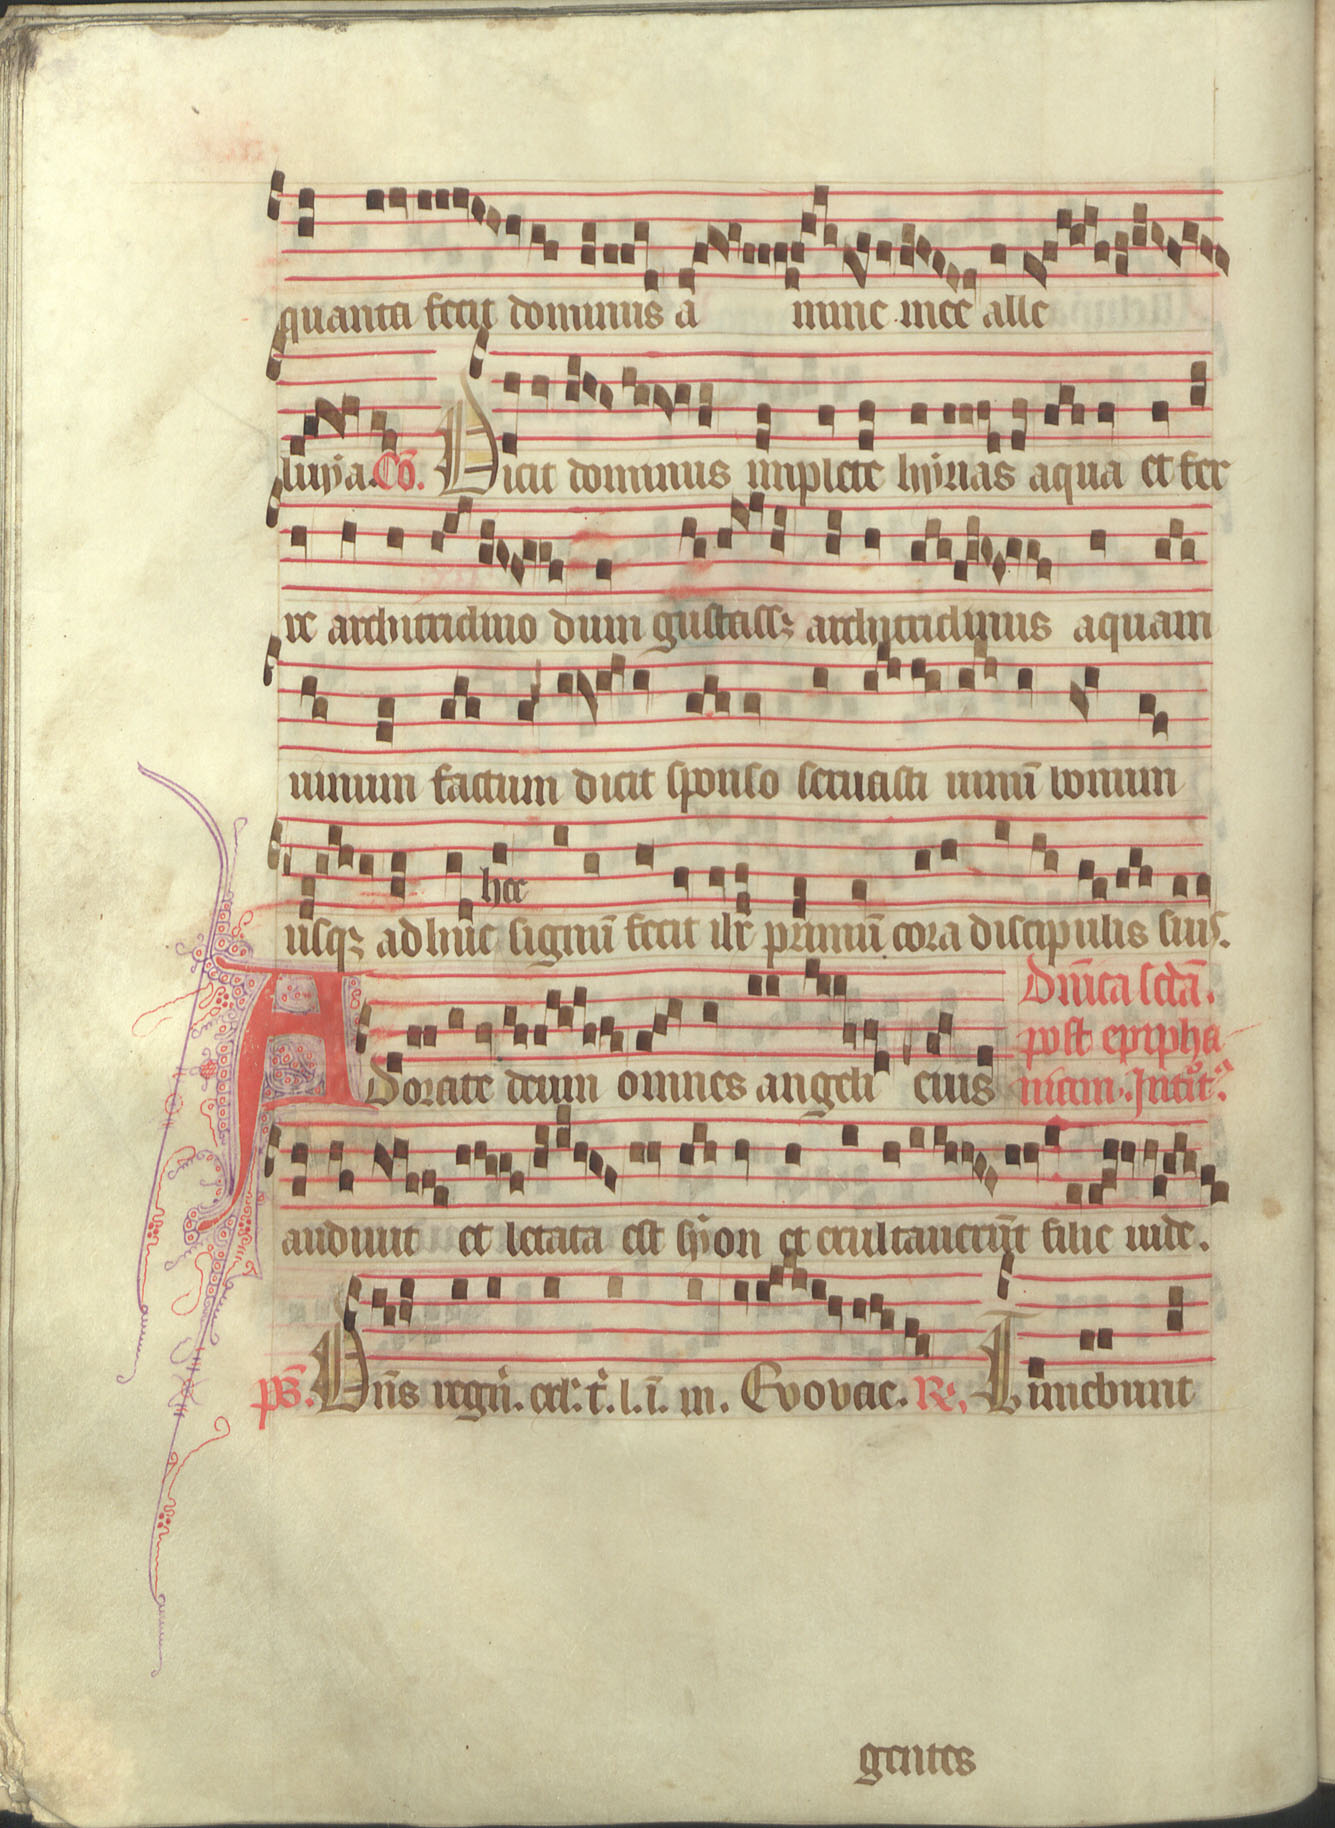 quanta fecit dominus a nime mee alle
luyia. Co᷃. Dicit dominus implete hẏrias aqua et fer
re architriclino dum gustassꝫ architriclinus aquam
uinum factum dicit sponso seruasti uinū bonum
usqꝫ adhuc hec signū fecit ihc primū corā discipulis suis.
Dn̄ica scd̄a.
post epypha
Adorate deum omnes angeli eius niam. Introit᷒.
audiuit et letata est sẏon et exultauerūt filie iude.
ps̄. Dn̄s regn̄. exl'. t̄. l. ī. m. Evovae. R. Timebunt
gentes